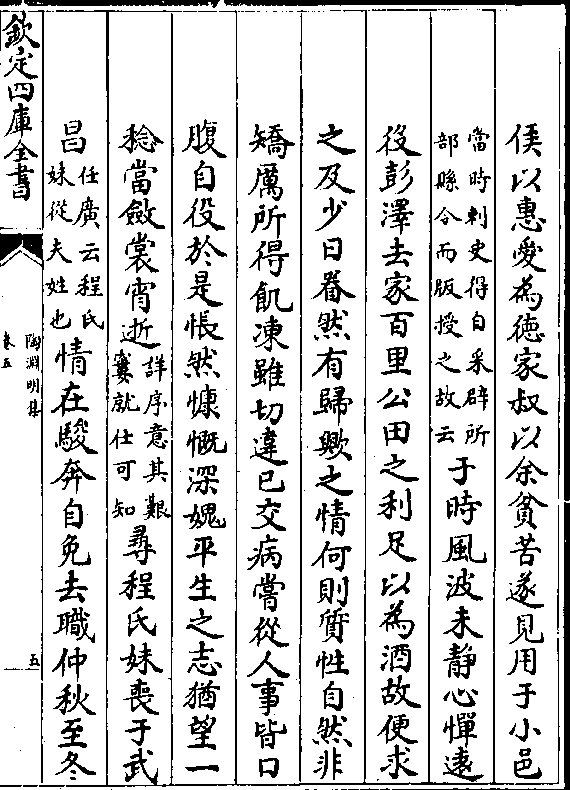 侯以惠愛為徳家叔以余貧苦遂見用于小邑
當時刺史得自采辟所
部縣令而版授之故云
于時風波未静心憚遠
役彭澤去家百里公田之利足以為酒故便求
之及少日眷然有歸歟之情何則質性自然非
矯厲所得飢凍雖切違已交病嘗從人事皆口
腹自役於是悵然慷慨深媿平生之志猶望一
稔當斂裳宵逝
詳序意其艱
窶就仕可知
尋程氏妹喪于武
昌
任廣云程氏
妹從夫姓也
情在駿奔自免去職仲秋至冬
欽定四庫全書
陶淵明集
卷五
五